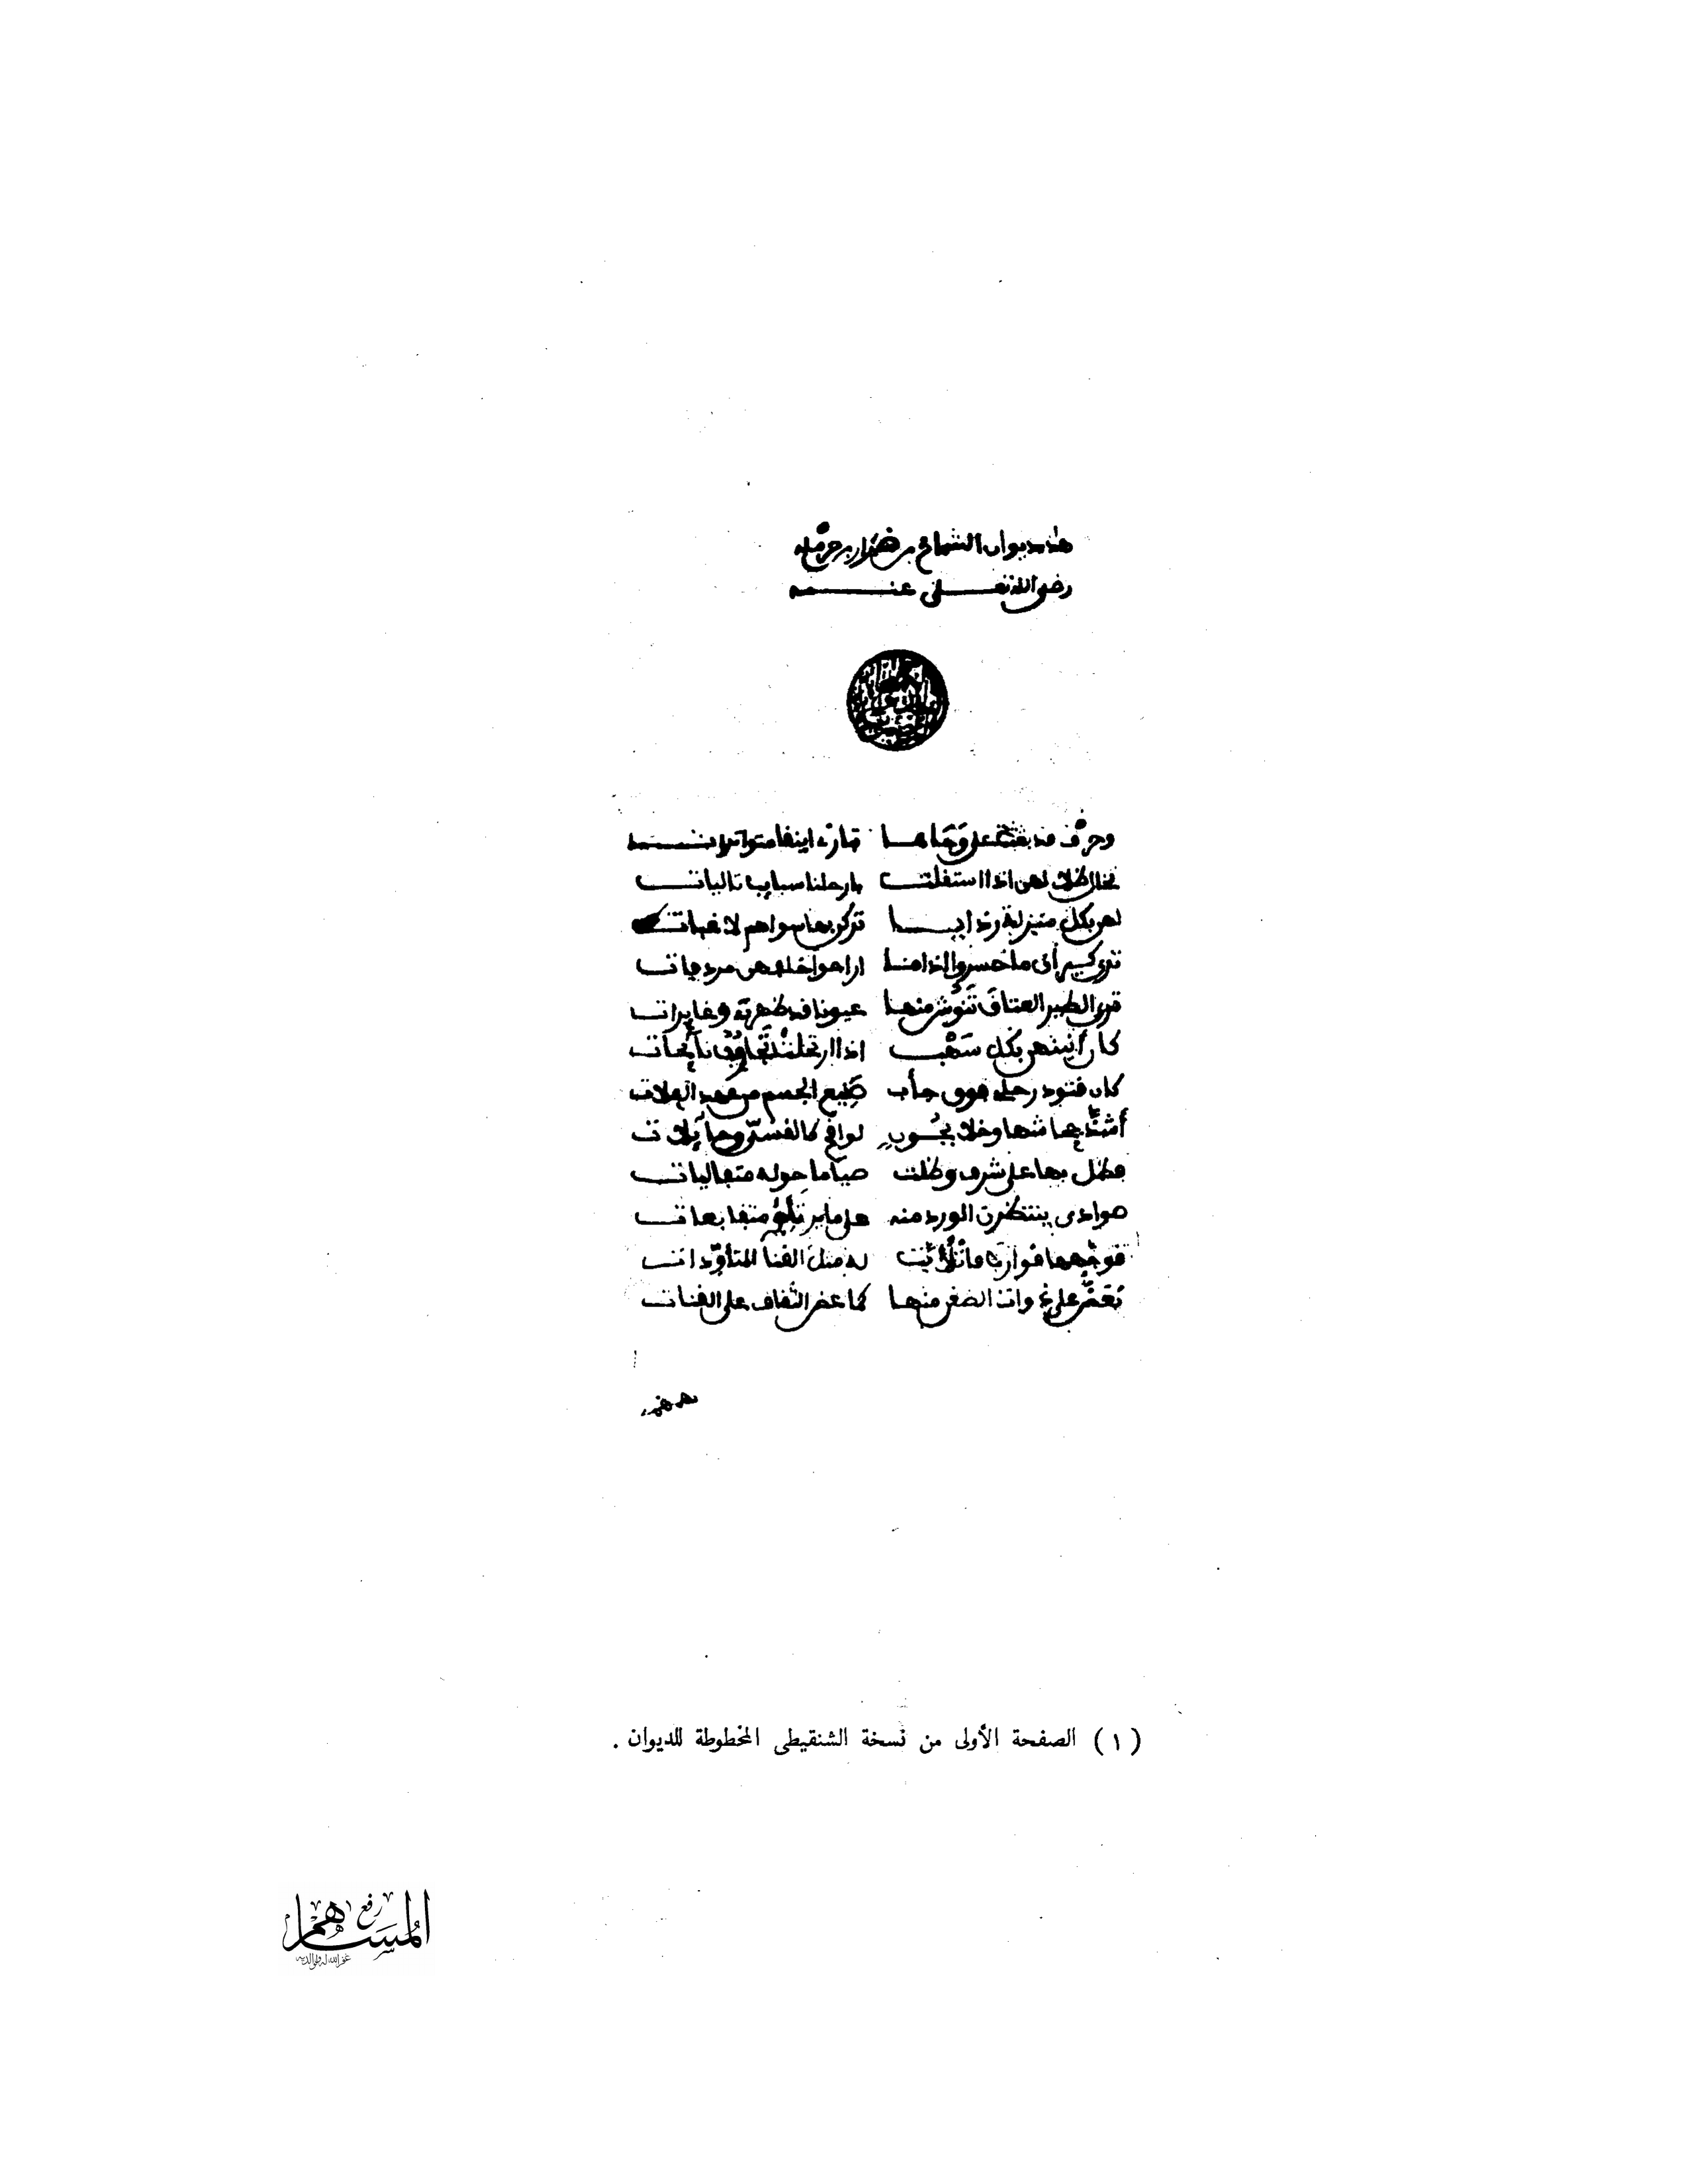 هذا ديوان الشماخ بن ضرار بن حرملة
رضي الله تعلى عنه
وحرف قد بعثت على وجاها تبارى اينقا متواترات
تخال ظلالهن اذا استقلت بارحلنا سبايب تاليات
لهن بكل منزلة رذايا تركن بها سواهم لاغبات
ترى كيران ما حسروا اذا ما اراحوا خلفهن مردفات
ترى الطير العتاق تنوش منها عيونا قد ظهرن وغايرات
كأن أنينهن بكل سهب اذا ارتحلت تجاوب نائحات
كان قتود رحلى فوق جأب صنيع الجسم من عهد الفلات
أشذ جحاشها وخلا بجون لواقح كالقسي وحائلات
فظل بها على شرف وظلت صياما حوله متفاليات
صوادى ينتظرن الورد منه على ما يرتئى متقابعات
فوجهها قوارب فاتلأبت له مثل القنا المتأودات
يعض على ذوات الضغن منها كما عض الثقاف على القنات
( ١ ) الصفحة الأولى من نسخة الشنقيطى المخطوطة للديوان .
رفع
المساهم
غفر الله له ولوالديه